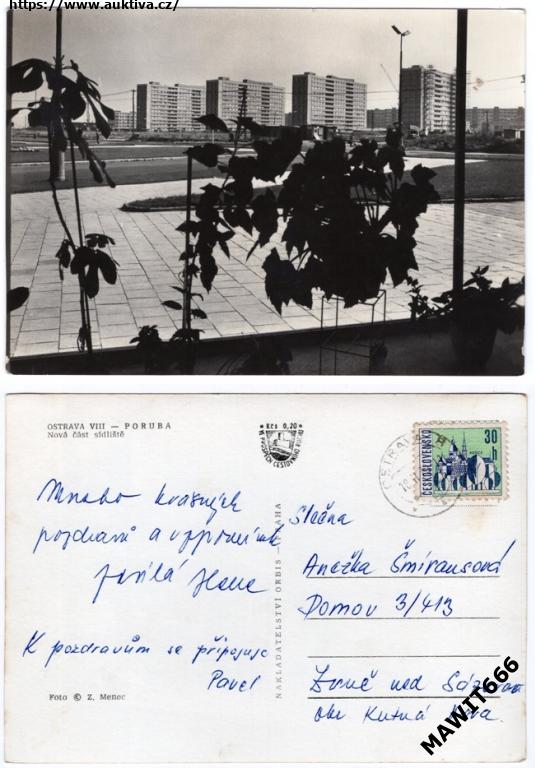 https://www.auktiva.cz/
OSTRAVA VIII — PORUBA
Nová část sídliště
Kčs 0,20
VE PROSPĚCH CESTOVNÍHO RUCHU
ČESKOSLOVENSKO
30 h
OSTRAVA 8
Mnoho krásných
pozdravů a vzpomínek
posílá
K pozdravům se připojuje
Pavel
Foto © Z. Menec
NAKLADATELSTVÍ ORBIS — PRAHA
Slečna
Anežka Šmiransová
Domov 3/413
Zruč nad Sázavou
okr Kutná Hora
MAWIT666